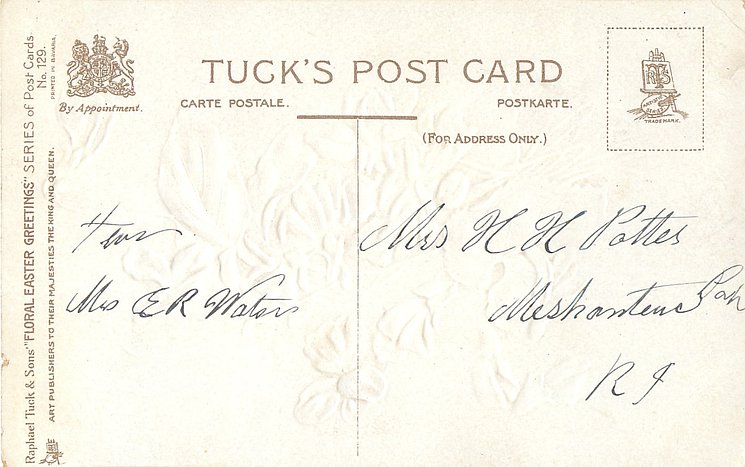 Raphael Tuck & Sons' "FLORAL EASTER GREETINGS" SERIES of Post Cards
No. 129.
PRINTED IN BAVARIA.
ART PUBLISHERS TO THEIR MAJESTIES THE KING AND QUEEN.
By Appointment.
TUCK'S POST CARD
CARTE POSTALE.
POSTKARTE.
(FOR ADDRESS ONLY.)
TRADE MARK.
Mrs E R Waters
Mrs H H Potter
Meshanteuc Park
R I